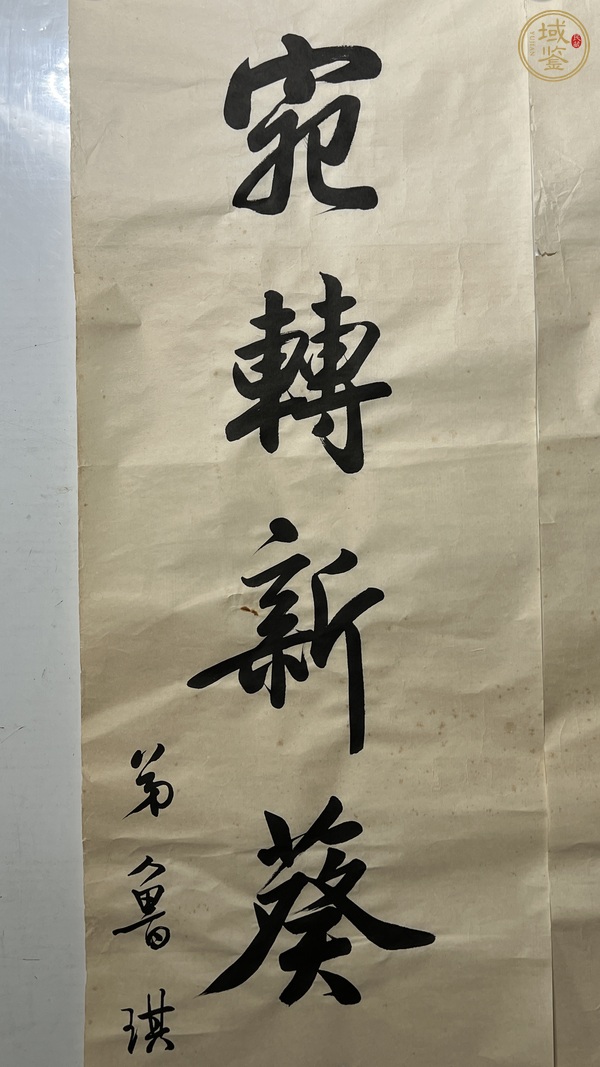 宛轉新葵
弟魯琪
域鉴